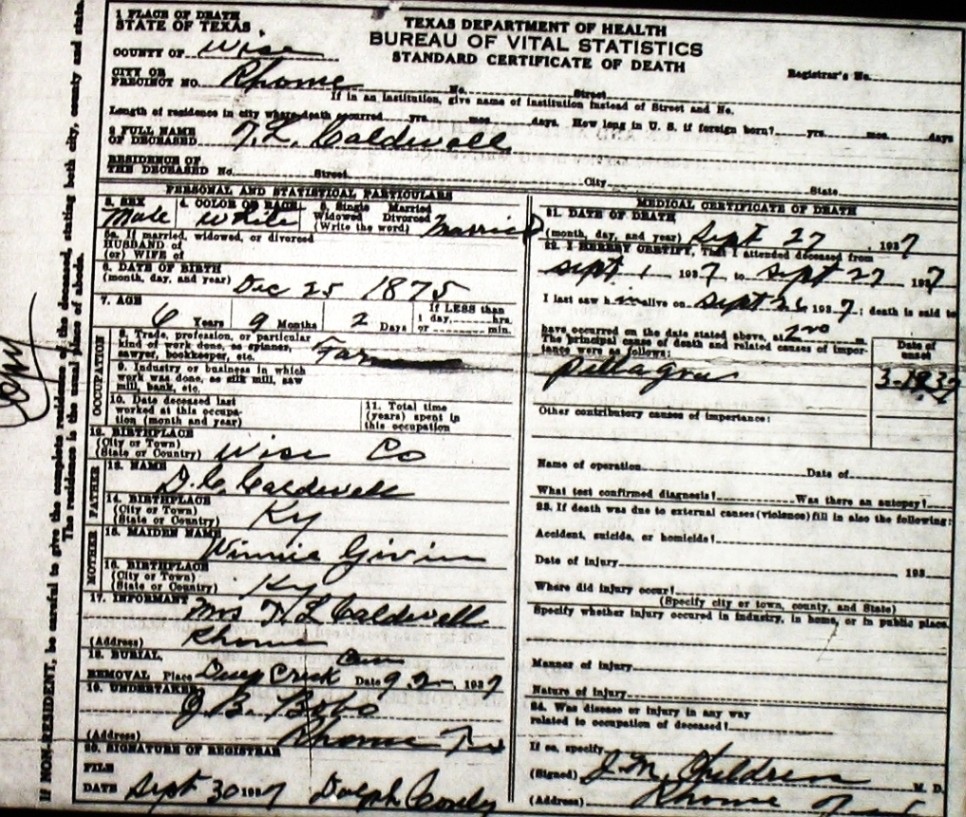 1 PLACE OF DEATH
STATE OF TEXAS
COUNTY OF Wise
CITY OR
PRECINCT NO. Rhome No. Street
TEXAS DEPARTMENT OF HEALTH
BUREAU OF VITAL STATISTICS
STANDARD CERTIFICATE OF DEATH
Registrar's No.
If in an institution, give name of institution instead of Street and No.
Length of residence in city where death occurred yrs. mos. days. How long in U. S. if foreign born? yrs. mos. days
2 FULL NAME
OF DECEASED T. L. Caldwell
RESIDENCE OF
THE DECEASED No. Street City State
PERSONAL AND STATISTICAL PARTICULARS
3. SEX Male 4. COLOR OR RACE White 5. Single Married Widowed Divorced (Write the word) Married
5a. If married, widowed, or divorced
HUSBAND of
(or) WIFE of
6. DATE OF BIRTH
(month, day, and year) Dec 25 1875
7. AGE 6 Years 9 Months 2 Days If LESS than 1 day, hrs. or min.
OCCUPATION
8. Trade, profession, or particular
kind of work done, as spinner,
sawyer, bookkeeper, etc.
9. Industry or business in which
work was done, as silk mill, saw
mill, bank, etc.
10. Date deceased last
worked at this occupa-
tion (month and year)
11. Total time
(years) spent in
this occupation
12. BIRTHPLACE
(City or Town)
(State or Country) Wise Co
FATHER
13. NAME D. C. Caldwell
14. BIRTHPLACE
(City or Town)
(State or Country) Ky
MOTHER
15. MAIDEN NAME Winnie
16. BIRTHPLACE
(City or Town)
(State or Country) Ky
17. INFORMANT Mrs T. L. Caldwell
(Address) Rhome
18. BURIAL, Cem
REMOVAL Place Deep Creek Date 9 2 , 1937
19. UNDERTAKER J. B. Bobo
(Address) Rhome Tex
20. SIGNATURE OF REGISTRAR
FILE
DATE Sept 30 1937 Dolph
MEDICAL CERTIFICATE OF DEATH
21. DATE OF DEATH
(month, day, and year) Sept 27 1937
22. I HEREBY CERTIFY, That I attended deceased from
Sept 1 1937 to Sept 27 1937
I last saw him alive on Sept 26 1937; death is said to
have occurred on the date stated above, at 2 m
The principal cause of death and related causes of impor-
tance were as follows:
Date of
onset
Pellagra
Other contributory causes of importance:
Name of operation Date of
What test confirmed diagnosis? Was there an autopsy?
23. If death was due to external causes (violence) fill in also the following:
Accident, suicide, or homicide?
Date of injury 193
Where did injury occur?
(Specify city or town, county, and State)
Specify whether injury occured in industry, in home, or in public place.
Manner of injury
Nature of injury
24. Was disease or injury in any way
related to occupation of deceased?
If so, specify
(Signed) J. M. Childress M. D.
(Address) Rhome
If NON-RESIDENT, be careful to give the complete residence of the deceased, stating both city, county and state.
The residence is the usual place of abode.
Copy